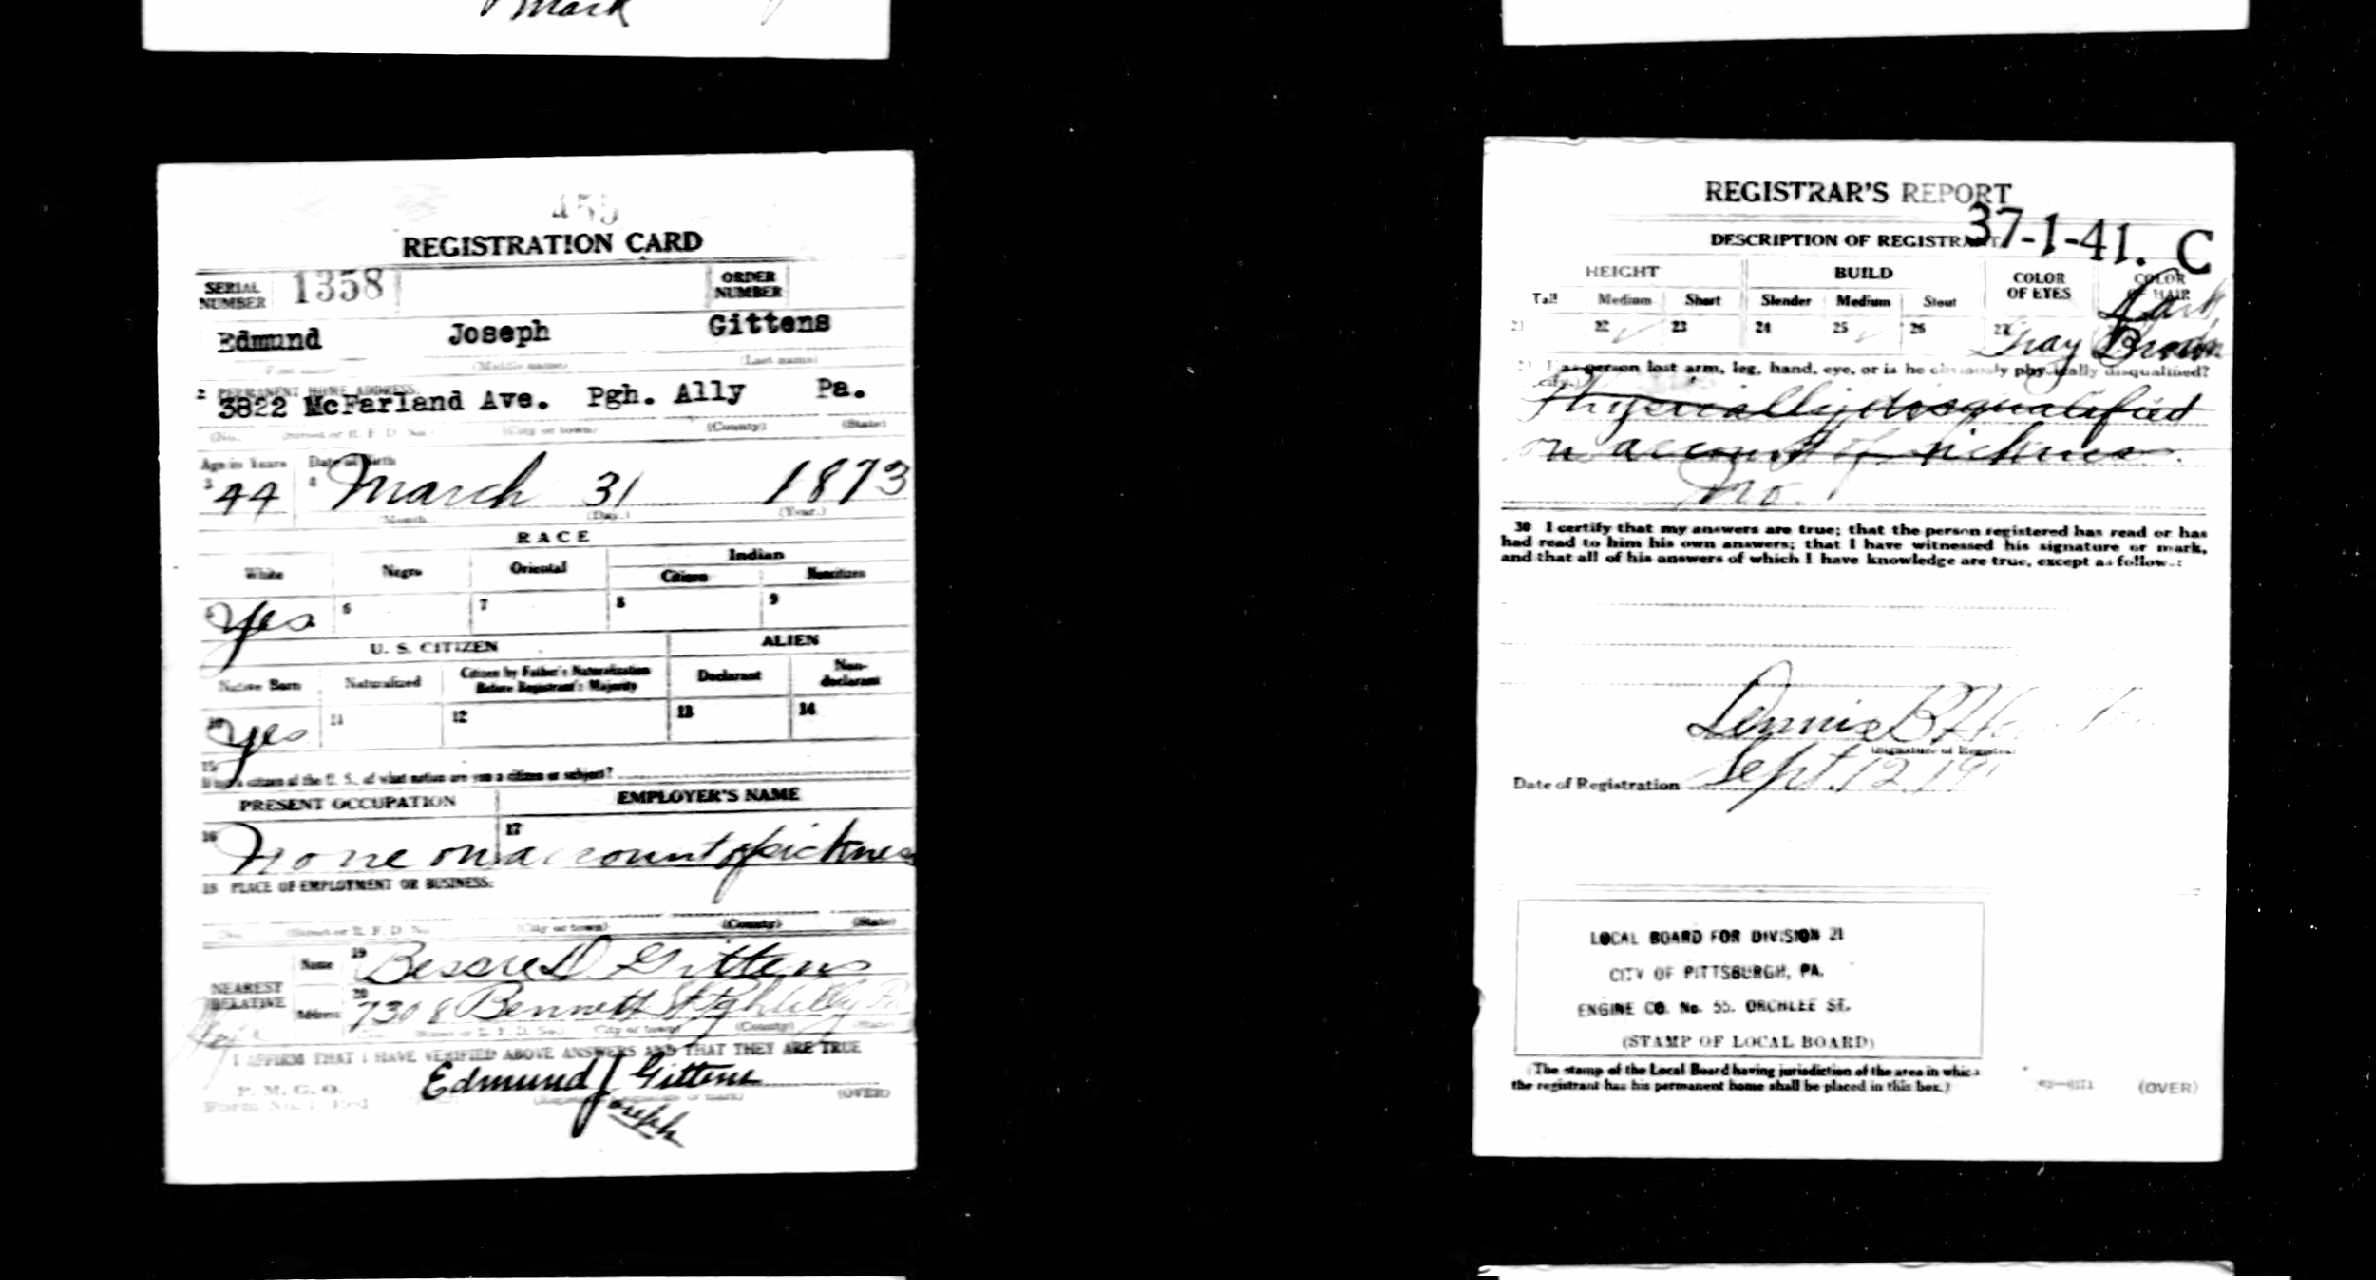 mark
455
REGISTRATION CARD
SERIAL NUMBER 1358 ORDER NUMBER
Edmund Joseph Gittens
(First name) (Middle name) (Last name)
2 PERMANENT HOME ADDRESS:
3822 McFarland Ave. Pgh. Ally Pa.
(No.) (Street or R. F. D. No.) (City or town) (County) (State)
Age in Years Date of Birth
3 44 4 March 31 1873
(Month.) (Day.) (Year.)
RACE
White Negro Oriental Indian
Citizen Noncitizen
Yes 6 7 8 9
U. S. CITIZEN ALIEN
Native Born Naturalized Citizen by Father's Naturalization Before Registrant's Majority Declarant Non-declarant
10 Yes 11 12 13 14
15
If not a citizen of the U. S., of what nation are you a citizen or subject?
PRESENT OCCUPATION EMPLOYER'S NAME
16 None on account of sickness 17
18 PLACE OF EMPLOYMENT OR BUSINESS:
(No.) (Street or R. F. D. No.) (City or town) (County) (State)
NEAREST RELATIVE Name 19 Bessie D Gittens
Address 20 7308 Bennett St Pgh Ally Pa
(Street or R. F. D. No.) (City or town) (County) (State)
I AFFIRM THAT I HAVE VERIFIED ABOVE ANSWERS AND THAT THEY ARE TRUE
P. M. G. O.
Edmund J Gittens
Joseph
(OVER)
REGISTRAR'S REPORT
37-1-41. C
DESCRIPTION OF REGISTRANT
HEIGHT BUILD COLOR OF EYES COLOR OF HAIR
Tall Medium Short Slender Medium Stout
21 22 ✓ 23 24 25 ✓ 26 27 Gray Dark Brown
29 Has person lost arm, leg, hand, eye, or is he obviously physically disqualified?
Physically disqualified
on account of sickness.
No.
30 I certify that my answers are true; that the person registered has read or has
had read to him his own answers; that I have witnessed his signature or mark,
and that all of his answers of which I have knowledge are true, except as follows:
Dennis B
(Signature of Registrar)
Date of Registration Sept. 12 191
LOCAL BOARD FOR DIVISION 21
CITY OF PITTSBURGH, PA.
ENGINE CO. No. 55. ORCHLEE ST.
(STAMP OF LOCAL BOARD)
(The stamp of the Local Board having jurisdiction of the area in which
the registrant has his permanent home shall be placed in this box.)
(OVER)